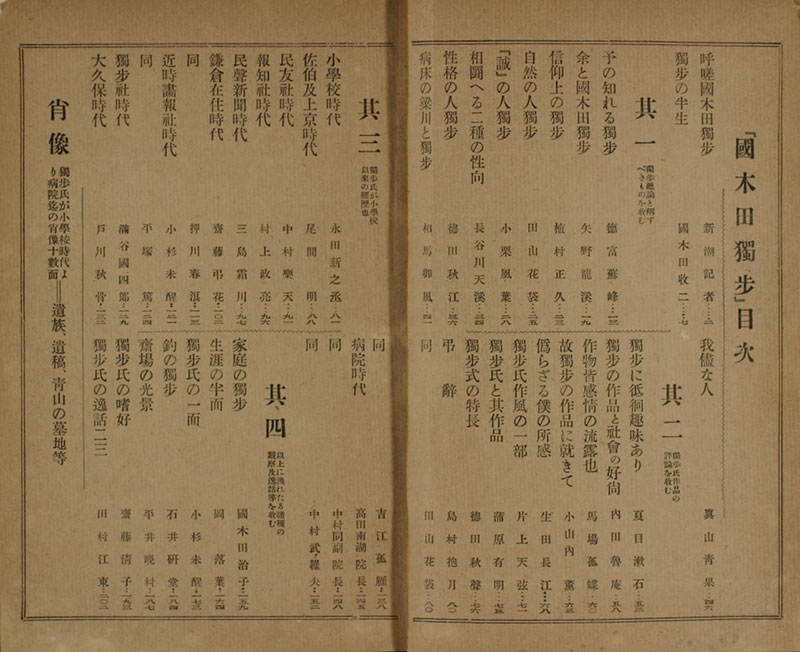 『國木田獨步』目次
呼嗟國木田獨步 新潮記者…二
獨步の半生 國木田收二…七
其一 獨步總論と稱すべきものを收む
予の知れる獨步 德富蘇峰…一三
余と國木田獨步 矢野龍溪…一九
信仰上の獨步 植村正久…二三
自然の人獨步 田山花袋…二五
『誠』の人獨步 小栗風葉…二八
相鬪へる二種の性向 長谷川天溪…三四
性格の人獨步 德田秋江…三六
病床の梁川と獨步 相馬御風…四一
我儘な人 眞山青果…四六
其二 獨步氏作品の評論を收む
獨步に低徊趣味あり 夏目漱石…五三
獨步の作品と社會の好尙 內田魯庵…五八
作物皆感情の流露也 馬場孤蝶…六〇
故獨步の作品に就きて 小山內薰…六三
僞らざる僕の所感 生田長江…六八
獨步氏作風の一部 片上天弦…七一
獨步氏と其作品 蒲原有明…七三
獨步式の特長 德田秋聲…七六
弔辭 島村抱月…八〇
同 田山花袋…八〇
其三 獨步氏が小學校以來の經歷也
小學校時代 永田新之丞…八一
佐伯及上京時代 尾間明…八八
民友社時代 中村樂天…九一
報知社時代 村上政亮…九六
民聲新聞時代 三島霜川…九七
鎌倉在住時代 齋藤弔花…一〇二
同 押川春浪…一一三
近時畫報社時代 小杉未醒…一二一
同 平塚篤…一二四
獨步社時代 蒲谷國四郞…一二九
大久保時代 戶川秋骨…一三二
同 吉江孤雁…一三八
病院時代 高田南湖院長…一四五
同 中村同副院長…一四八
同 中村武羅夫…一五二
其四 以上に洩れたる諸種の觀察及逸話等を收む
家庭の獨步 國木田治子…一五九
生涯の半面 岡落葉…一六四
獨步氏の一面 小杉未醒…一七三
釣の獨步 石井硏堂…一八四
齋場の光景 平井晚村…一八七
獨步氏の嗜好 齋藤清子…一九三
獨步氏の逸話二三 田村江東…二〇二
肖像 獨步氏が小學校時代より病院迄の肖像十數面═遺族、遺稿、靑山の墓地等